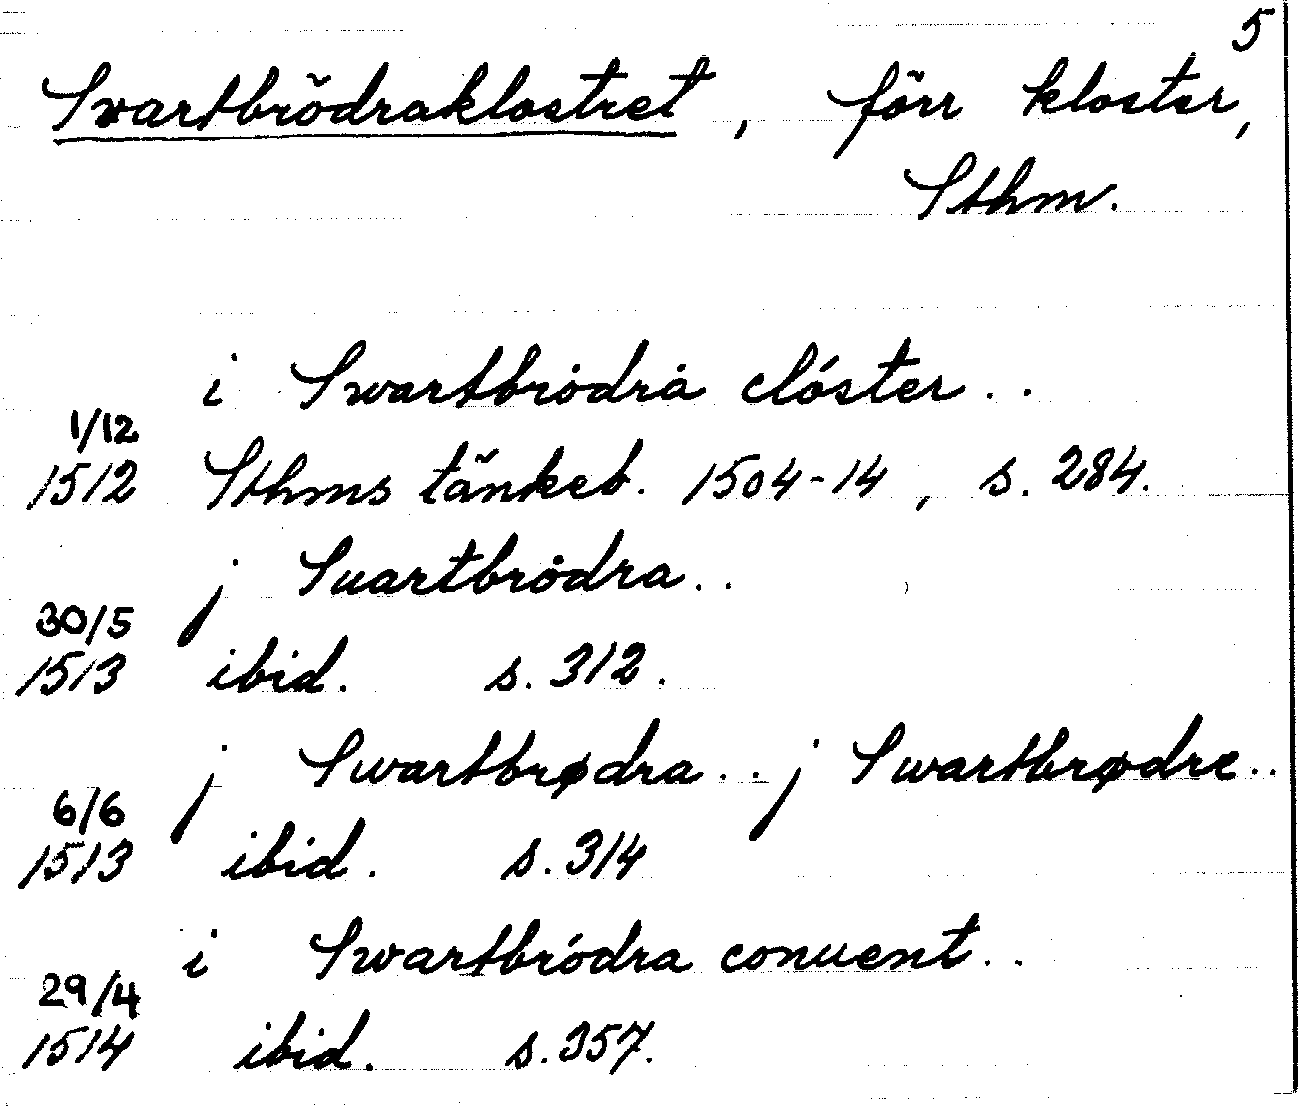 5
Svartbrödraklostret, förr kloster,
Sthm.
i Swartbrȯdrȧ clóster..
1/12
1512 Sthms tänkeb. 1504-14, s. 284.
j Suartbrȯdra..
30/5
1513 ibid. s. 312.
j Swartbrødra.. j Swartbrødre..
6/6
1513 ibid. s. 314
i Swartbródra conuent..
29/4
1514 ibid. s. 357.